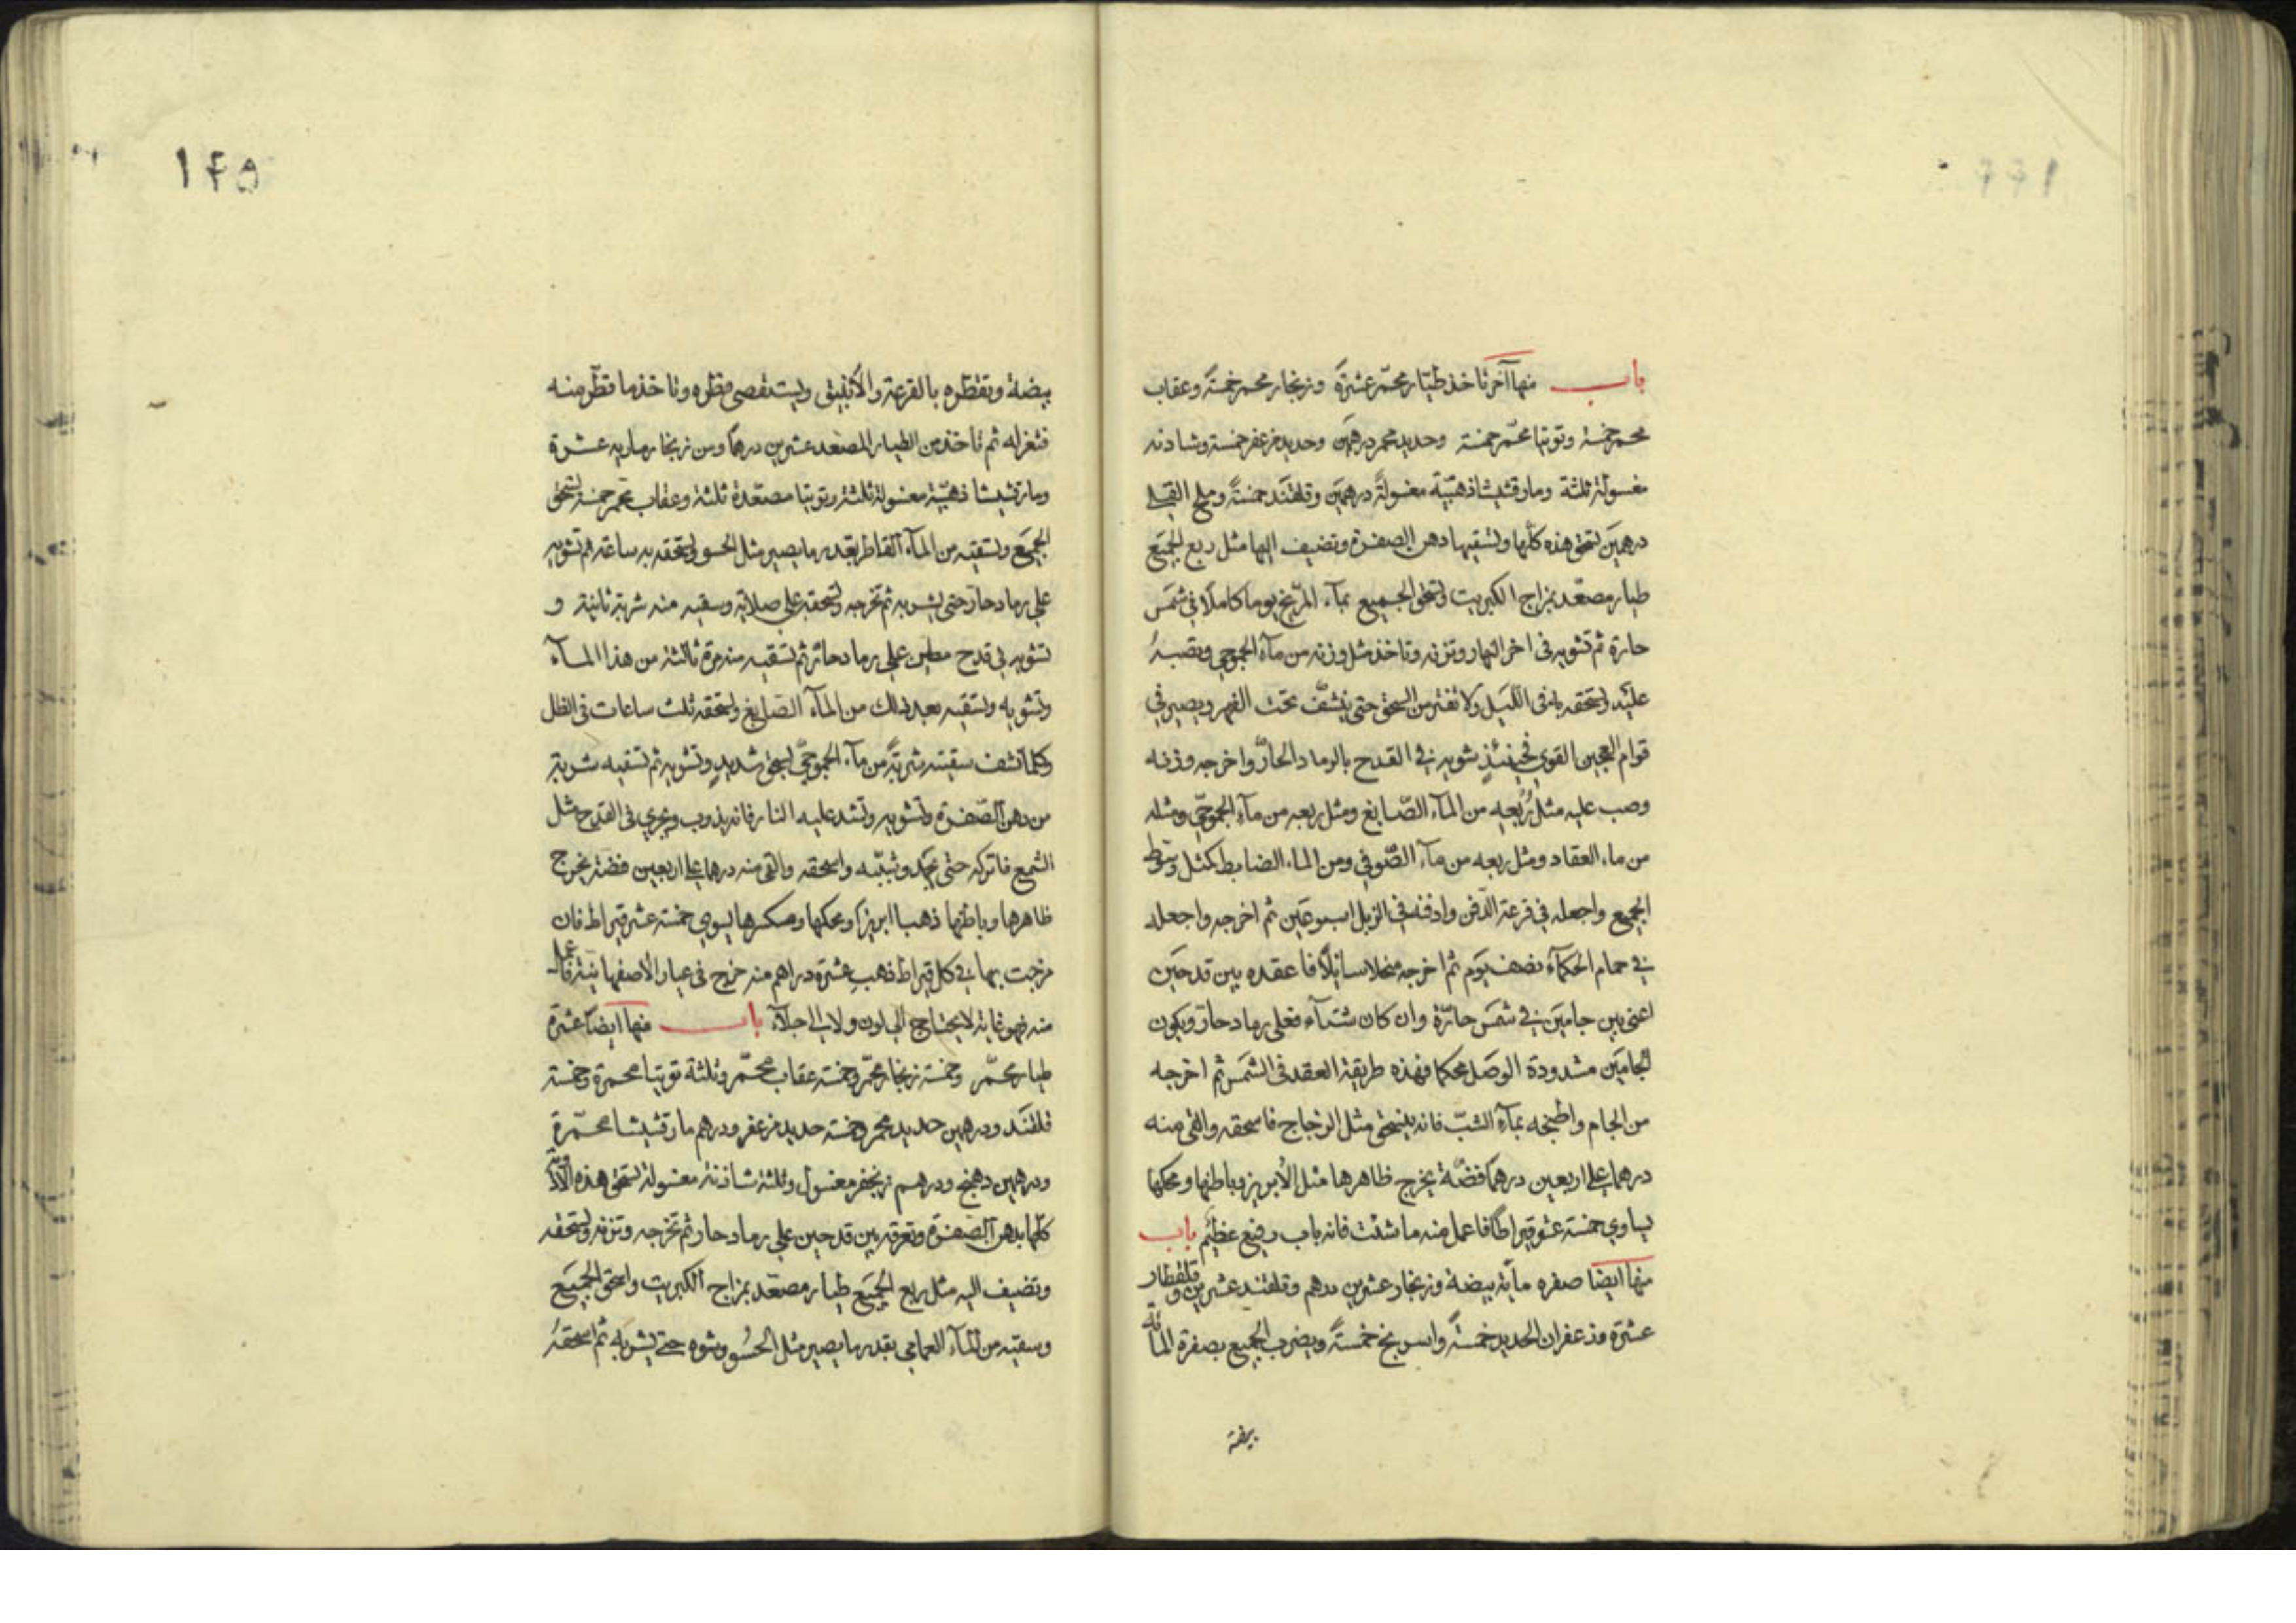 باب منها آخر تاخذ طيّار محمّر عشرة وزنجار محمر خمسة وعقاب
محمر خمسة وتوتيا محمّر خمسة وحديد محمر درهمين وحديد مزعفر خمسة وشادنه
مغسولة ثلثة ومارقشيشا ذهبيّة مغسولة درهمين وقلقند خمسةً وملح القلي
درهمين تسحق هذه كلّها وتسقيها دهن الصفرة وتضيف اليها مثل ربع الجميع
طيار مصعّد بزاج الكبريت وتسحق الجميع بمآء المرّيخ يوما كاملا في شمس
حارة ثم تشويه فى اخر النهار وتزنه وتاخذ مثل وزنه من مآء الجموحي وتصبهُ
عليه وتسحقه به فى اللّيل ولا تفتر من السحق حتى ينشّف تحت الفهر ويصير في
قوام العجين القوي فحينئذٍ تشويه في القدح بالرماد الحارّ واخرجه وزنه
وصب عليه مثل رُبعه من المآء الصّابغ ومثل ربعه من مآء الجموحّي ومثله
من ماء العقاد ومثل ربعه من مآء الصّوفي ومن الماء الضابط كمثل وسوط
الجميع واجعله في قرعة الدّفن وادفنه في الزبل اسبوعين ثم اخرجه واجعله
في حمام الحكمآء نصف يوم ثم اخرجه منحلا سائلًا فاعقده بين قدحين
اعنى بين جامين في شمس حارّة وان كان شتآء فعلى رماد حارّ ويكون
الجامين مشدودة الوصل محكما فهذه طريقة العقد فى الشمس ثم اخرجه
من الجام واطبخه بمآء الشبّ فانه ينسحق مثل الزجاج فاسحقه والقى منه
درهما على اربعين درهمًا فضّة يخرج ظاهرها مثل الأبريز وباطنها ومحكها
يساوي خمسة عشر قيراطًا فاعمل منه ما شئت فانه باب رفيع عظيم باب
منها ايضا صفره مأية بيضة وزنجار عشرين درهم وقلقند عشرين وقلقطار
عشرة وزعفران الحديد خمسةً واسرنج خمسةً ويضرب الجميع بصفرة المائة
بيضة
١٤٥
بيضة وتقطّره بالقرعة والأنبيق ويستقصى قطره وتاخذ ما قطّر منه
فتعزله ثم تاخذ من الطيار المصعد عشرين درهمًا ومن زنجار ماريه عشرة
ومارقشيشا ذهبيّة مغسولة ثلثة وتوتيا مصعّدة ثلثة وعقاب محمر خمسة تسحق
الجميع وتسقيه من المآء القاطر بقدر ما يصير مثل الحسو وتسحقه به ساعة ثم تشويه
على رماد حارّ حتى يشربه ثم تخرجه وتسحقه على صلاية وسقيه منه شربة ثانية و
تشويه فى قدح مطين على رماد حارّ ثم تسقيه منه مرة ثالثة من هذا المآء
وتشويه وتسقيه بعد ذلك من المآء الصّابغ وتسحقه ثلث ساعات فى الظل
وكلما نشف سقيته شربةً من مآء الجموحّي بسحق شديدٍ وتشويه ثم تسقيه شربة
من دهن الصّفرة وتشويه وتشد عليه النار فانه يذوب ويجري فى القدح مثل
الشمع فاتركه حتى يجمد وشبّبه واسحقه والقى منه درهما على اربعين فضة يخرج
ظاهرها وباطنها ذهبا ابريزا ومحكها ومكسرها يسوي خمسة عشر قيراط فان
مزجت بها في كل قيراط ذهب عشرة دراهم منه خرج فى عيار الأصفهانية فاعمل
منه فهو غاية لا يحتاج الى لون ولا الى جلآء باب منها ايضًا عشرة
طيار محمّر وخمسة زنجار محمّر وخمسة عقاب محمّر وثلثة توتيا محمرة وخمسة
قلقند ودرهمين حديد محمر وخمسة حديد مزعفر ودرهم مارقشيشا محمّرة
ودرهمين دهنج ودرهم زنجفر مغسول وثلثة شاذنة مغسولة تسحق هذه
كلّها بدهن الصفرة وتعرقه بين قدحين على رماد حار ثم تخرجه وتزنه وتسحقه
وتضيف اليه مثل ربع الجميع طيار مصعّد بزاج الكبريت واسحق الجميع
وسقيه من المآء العمامي بقدر ما يصير مثل الحسُو وشوه حتى يشربه ثم اسحقهُ